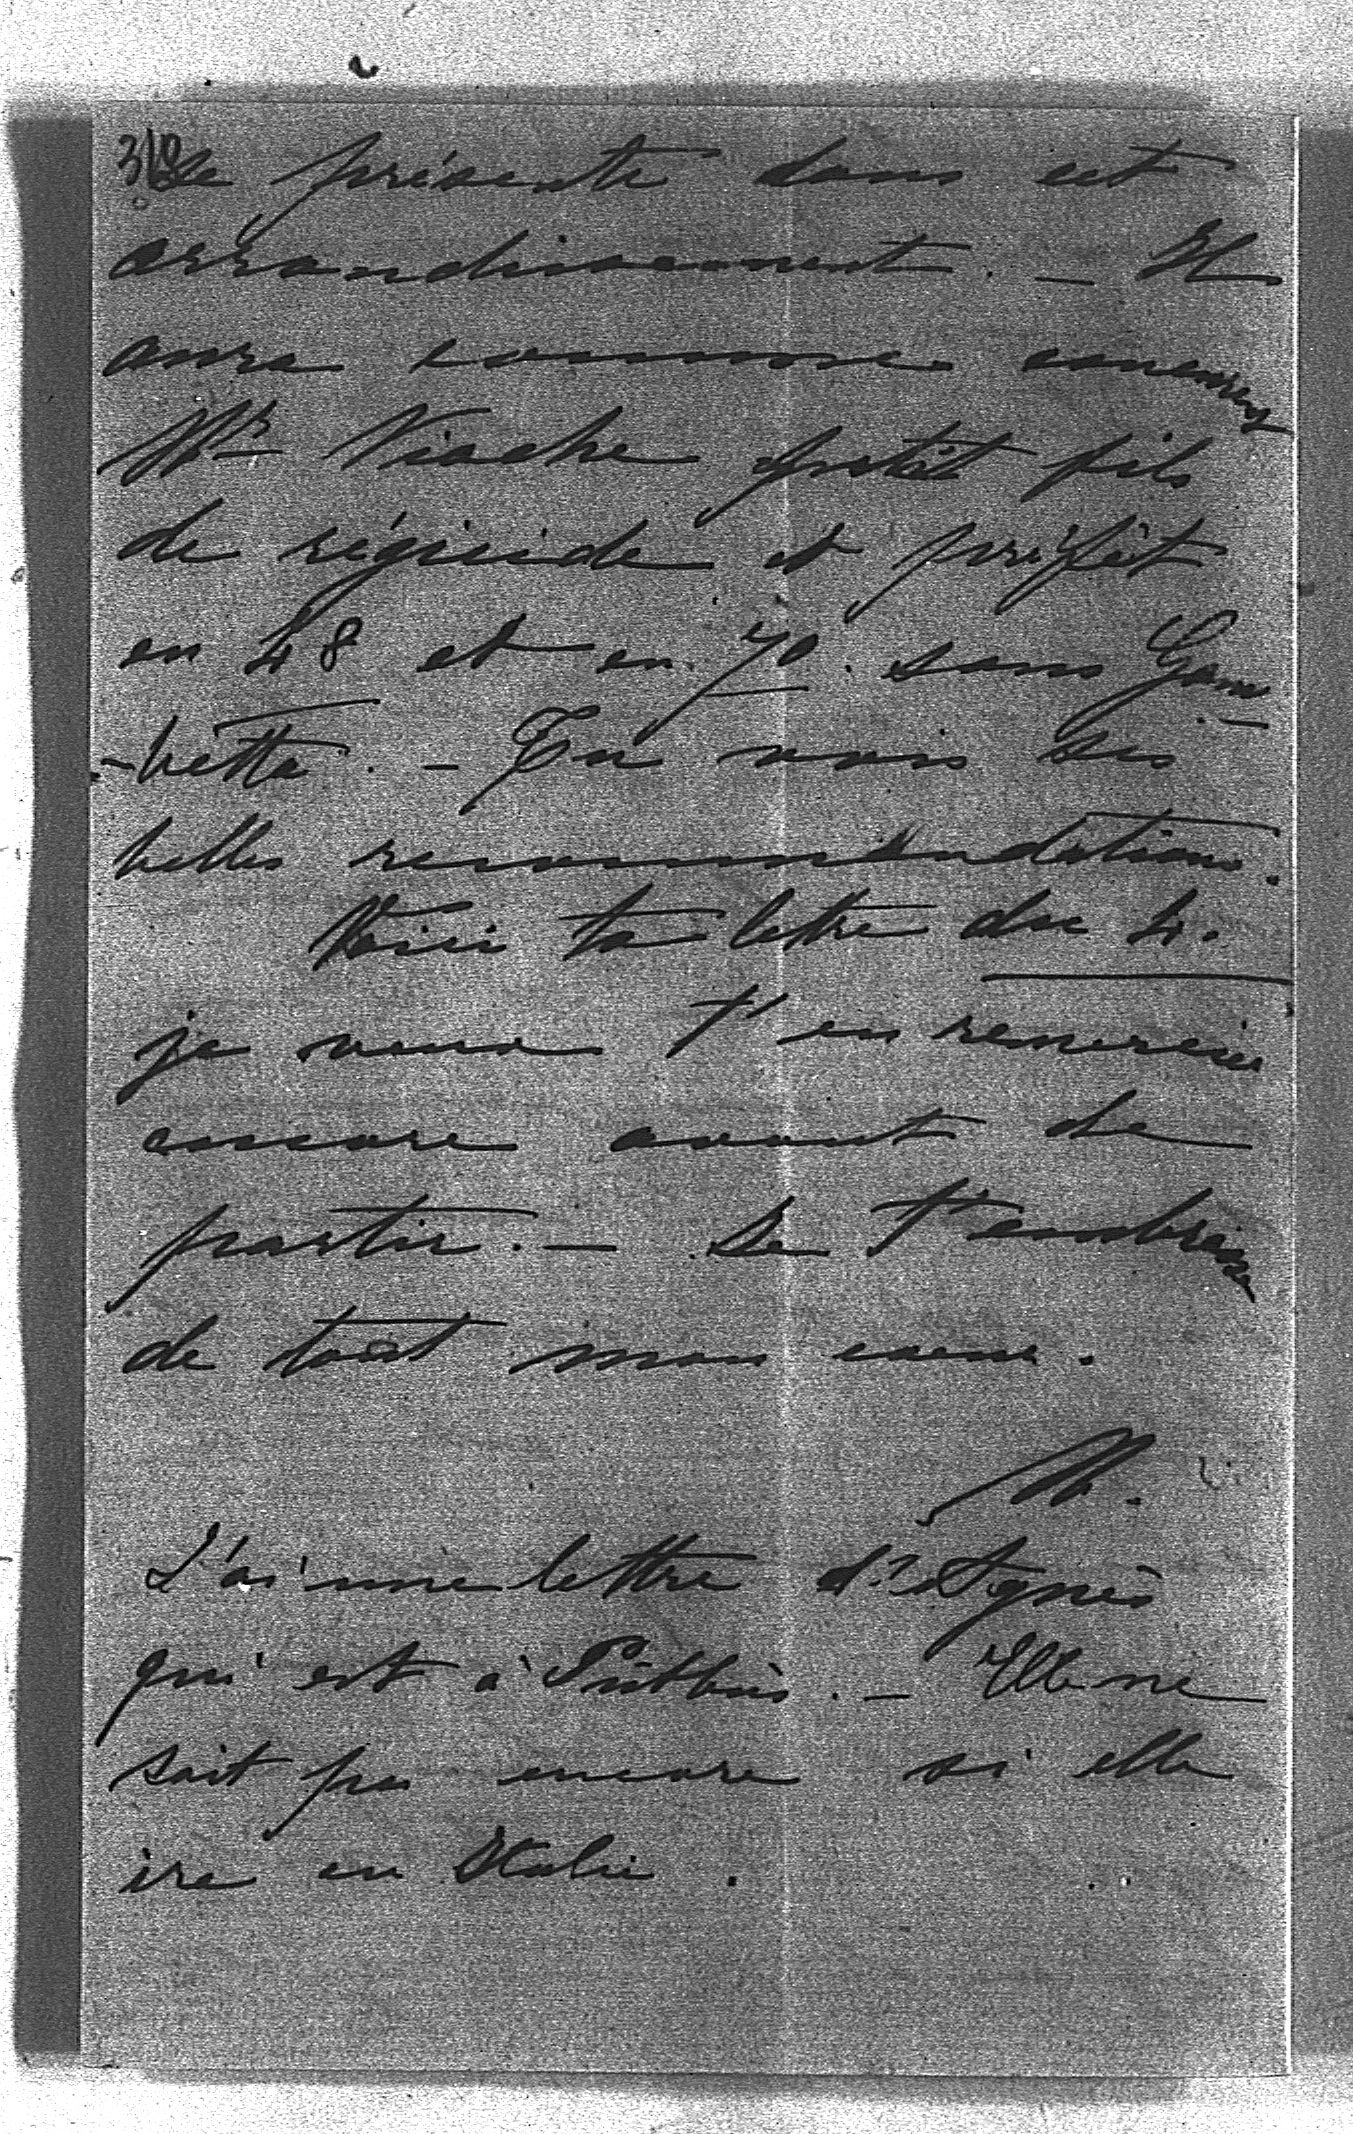 se présente dans cet
arrondissement. – Il
aura comme concurrent
Mr petit fils
de régicide et préfet
en 48 et en 70. sous Gam
-betta. – Tu vois ses
belles recommandations.
Voici ta lettre du 4.
je veux t'en remercier
encore avant de
partir. – Je t'embrasse
de tout mon coeur.
M.
J'ai une lettre d'Agnès
qui est à Putbus. – Elle ne
sait pas encore si elle
ira en Italie.